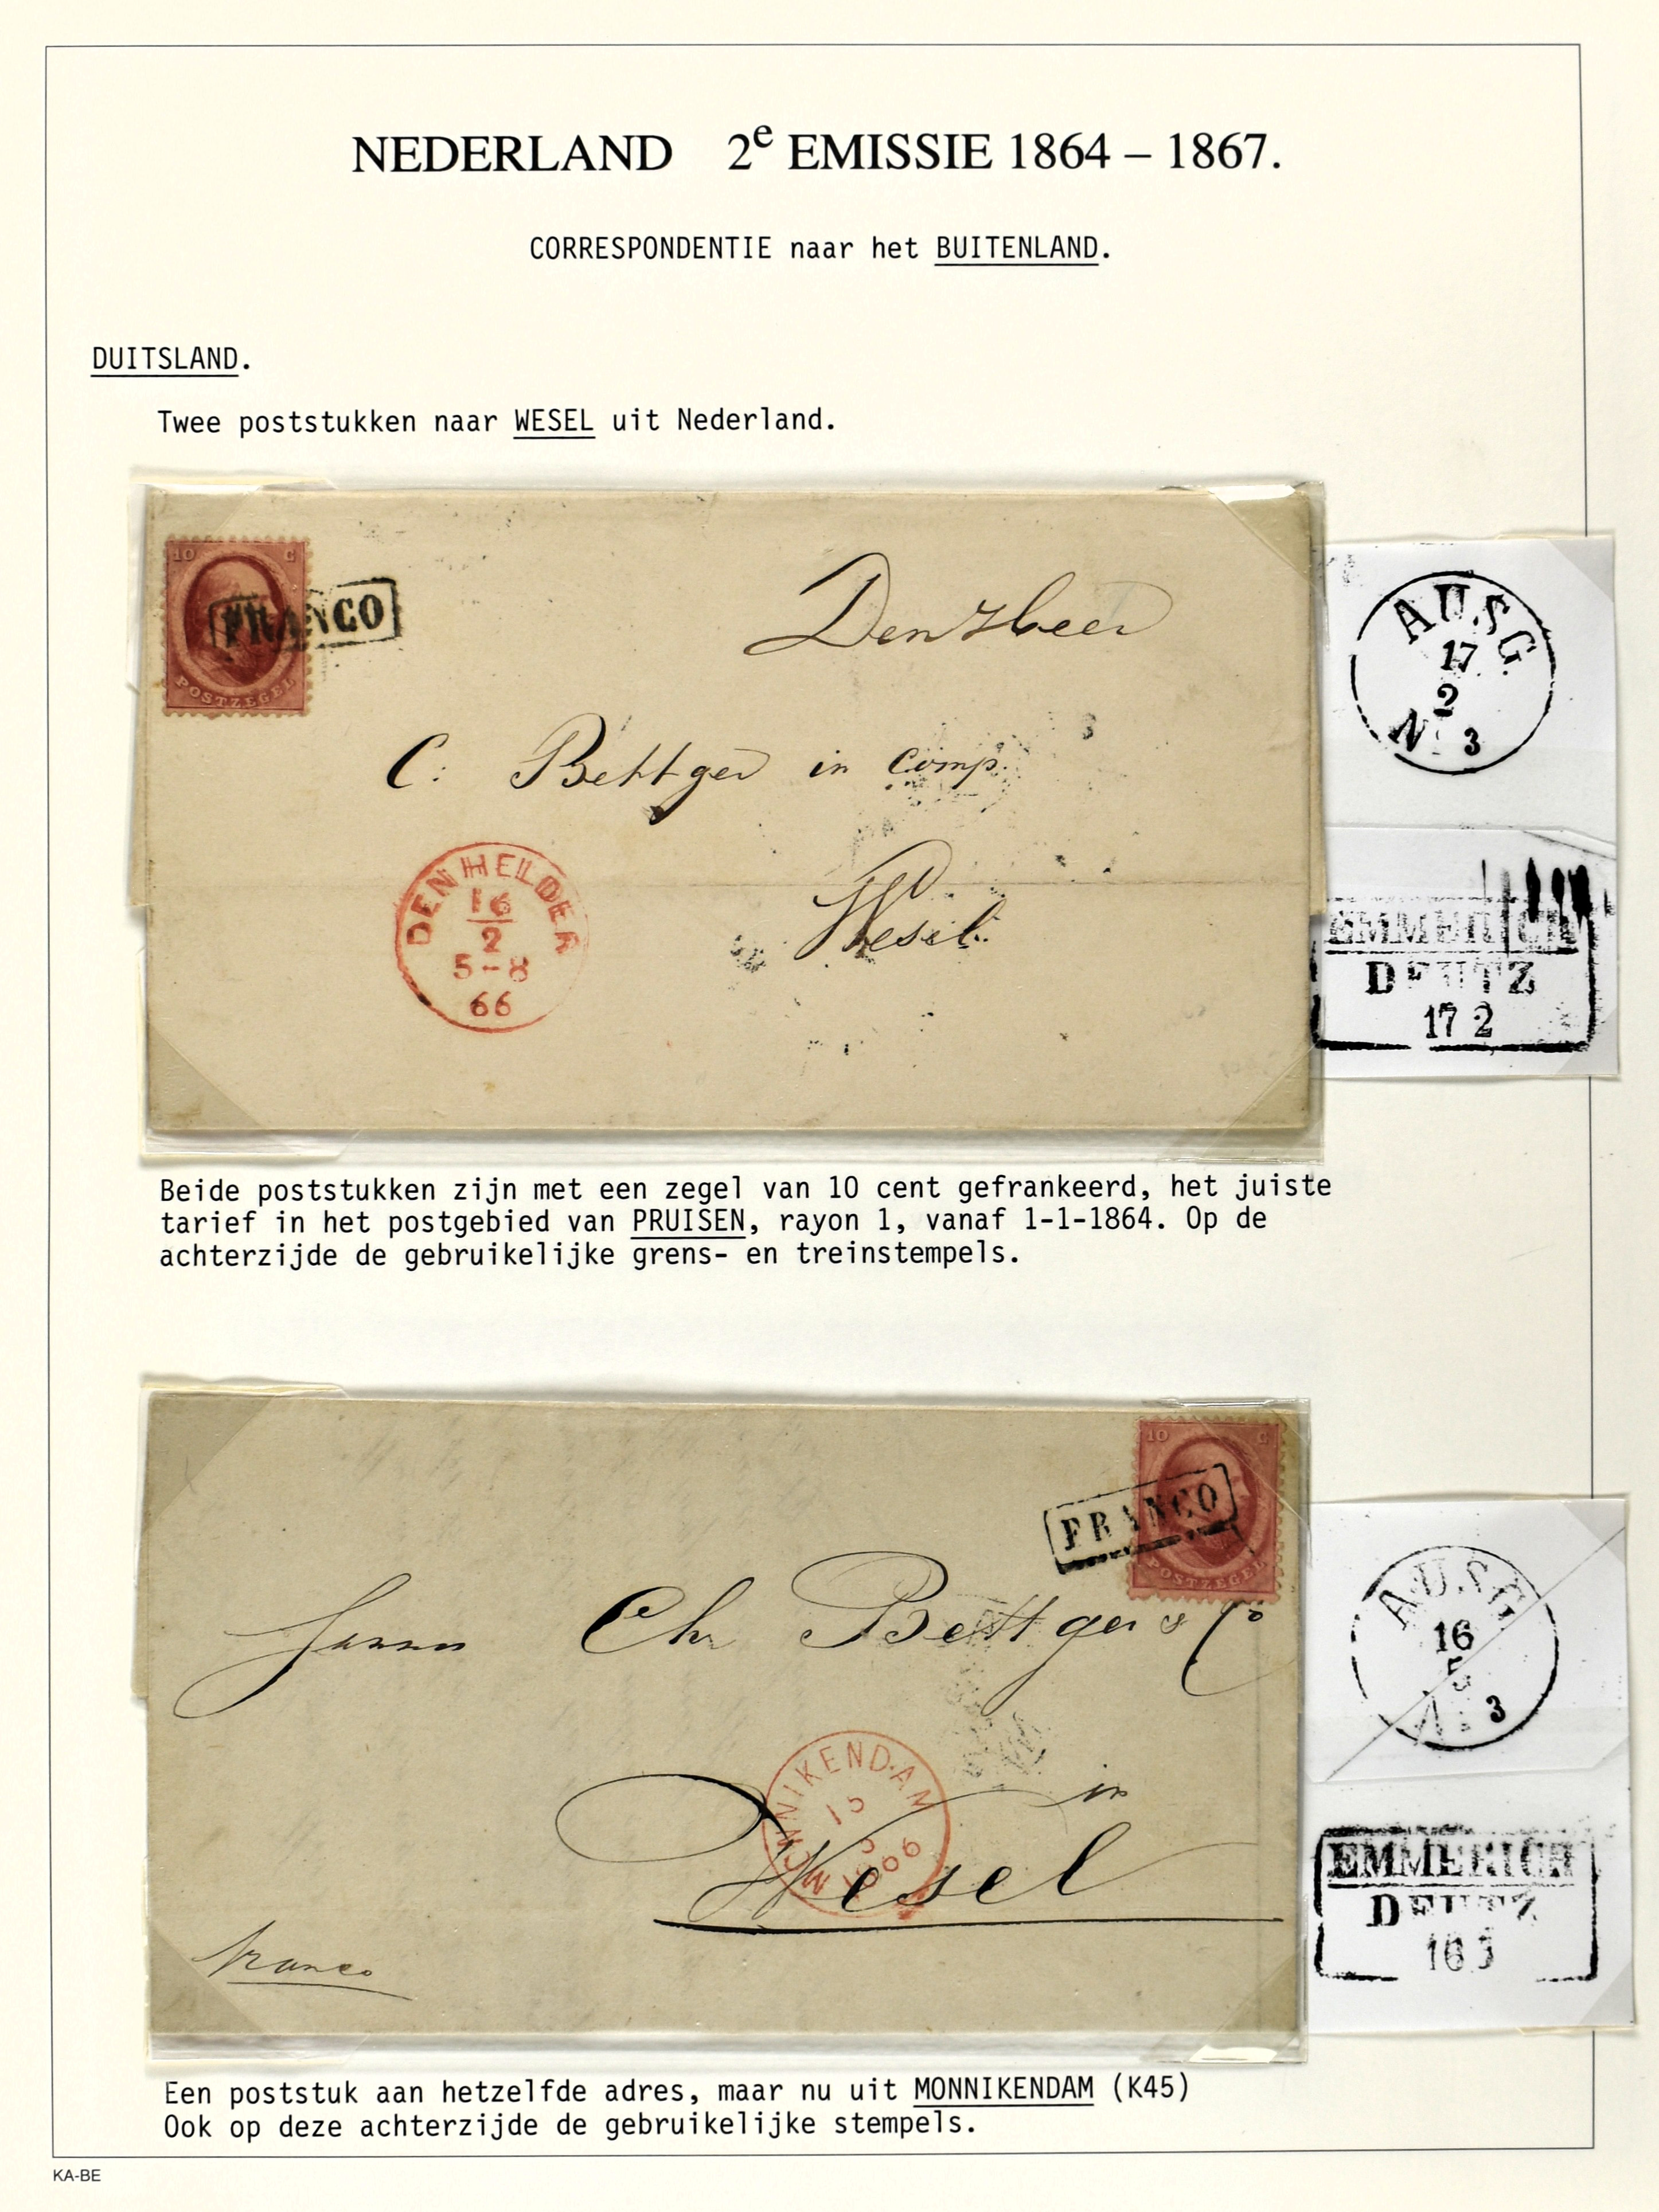 NEDERLAND 2e EMISSIE 1864 – 1867.
CORRESPONDENTIE naar het BUITENLAND.
DUITSLAND.
Twee poststukken naar WESEL uit Nederland.
10 C
FRANCO
POSTZEGEL
C: Bettger in comp.
Wesel.
DEN HELDER
16
2
5-8
66
AUSG.
17
2
N. 3
EMMERICH
DEUTZ
17 2
Beide poststukken zijn met een zegel van 10 cent gefrankeerd, het juiste
tarief in het postgebied van PRUISEN, rayon 1, vanaf 1-1-1864. Op de
achterzijde de gebruikelijke grens- en treinstempels.
10 C
FRANCO
POSTZEGEL
Chr Bettger & Co
in
Wesel
MONNIKENDAM
15
1866
franco
AUSG
16
5
N. 3
EMMERICH
DEUTZ
16 5
Een poststuk aan hetzelfde adres, maar nu uit MONNIKENDAM (K45)
Ook op deze achterzijde de gebruikelijke stempels.
KA-BE